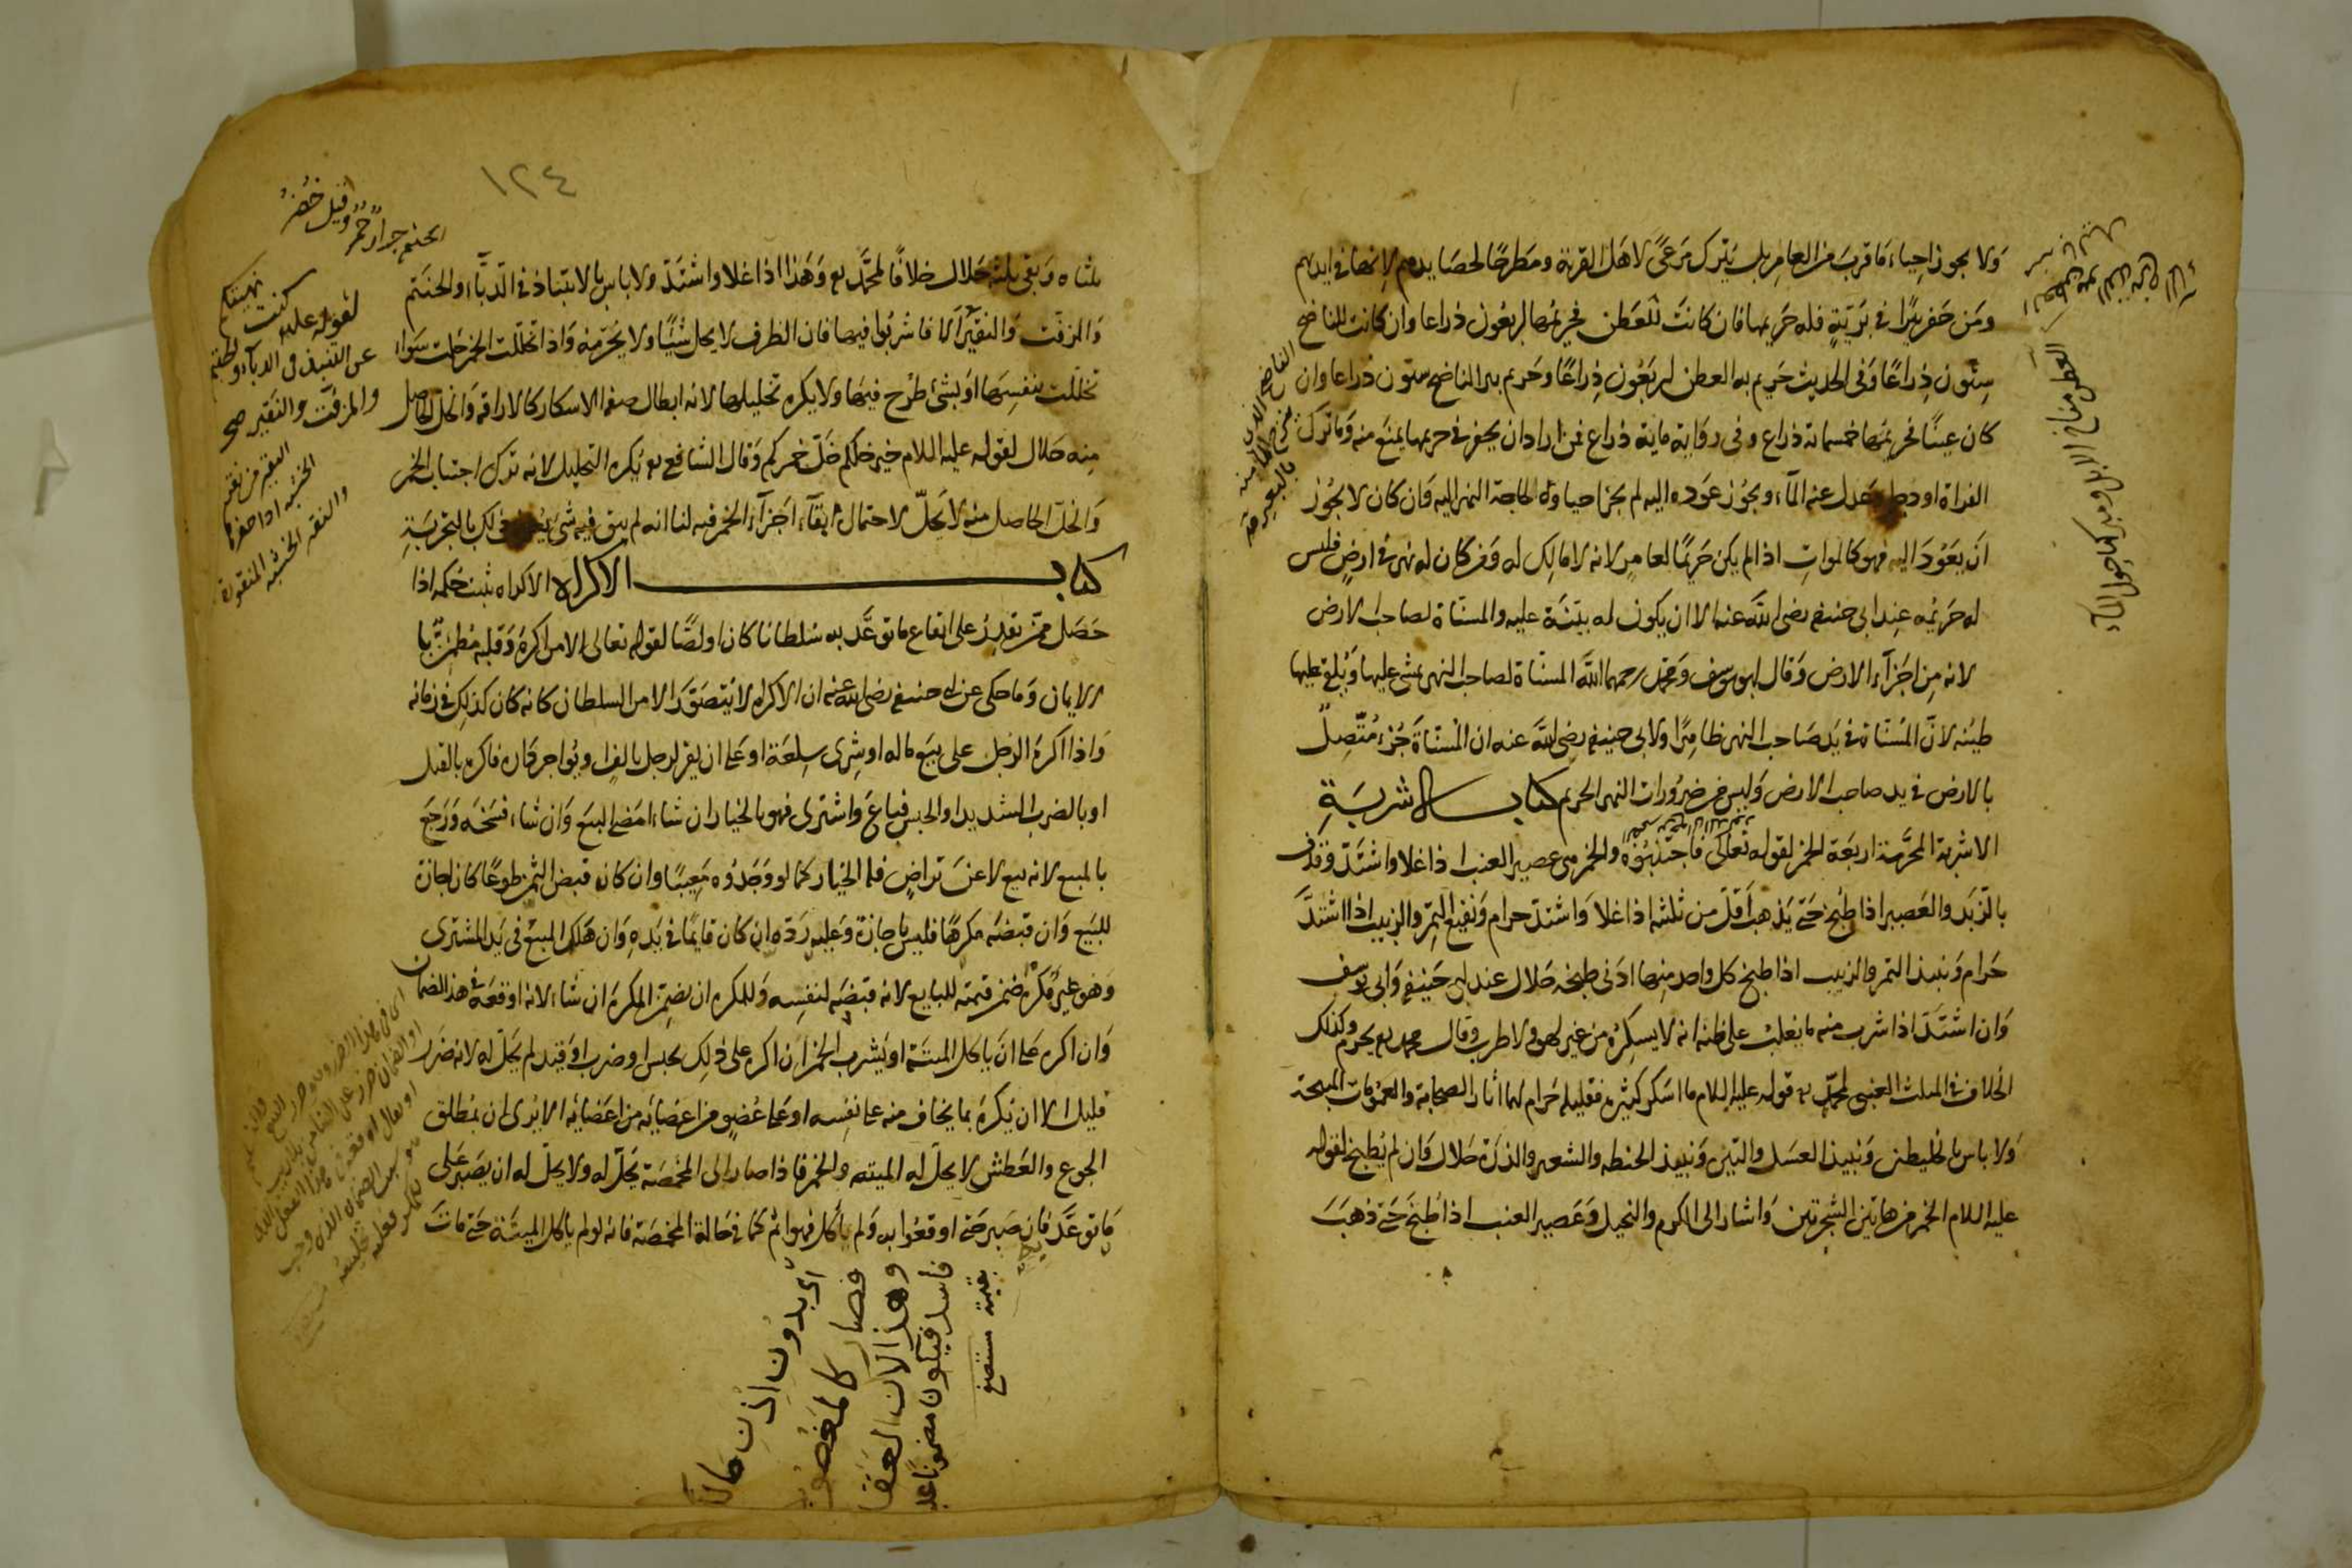 ولا يجوز احياء ما قرب من العامر بل يترك مرعًى لاهل القرية ومطرحًا لحصايدهم لانها في ايديهم
ومن حفر بئرًا في برّيّة فله حريمها فان كانت للعطن فحريمها اربعون ذراعا وان كانت للناضح
ستون ذراعًا وفى الحديث حريم بير العطن اربعون ذراعًا وحريم بير الناضح ستون ذراعا وان
كان عينًا فحريمها خمسماية ذراع وفى رواية ماية ذراع فمن اراد ان يحفر في حريمها يمنع منه وما ترك
الفراة او دجلة وعدل عنه الماء ويجوز عوده اليه لم يجز احياوه لحاجة النهر اليه وان كان لا يجوز
ان يعود اليه فهو كالموات اذا لم يكن حريمًا لعامر لانه لا مالك له ومن كان له نهر في ارض فليس
له حريمه عند ابى حنيفة رضى الله عنه الا ان يكون له بيّنة عليه والمسنّاة لصاحب الارض
لانه من اجزآء الارض وقال ابو يوسف ومحمد رحمهما الله المسنّاة لصاحب النهر يمشى عليها ويلقى عليها
طينه لانّ المسنّاة في يد صاحب النهر ظاهرًا ولابى حنيفة رضى الله عنه ان المسنّاة جزء متّصل
بالارض في يد صاحب الارض وليس من ضرورات النهر الحريم كتاب الاشربة
الاشربة المحرّمة اربعة الخمر لقوله تعالى فاجتنبوه والخمر هى عصير العنب اذا غلا واشتدّ وقذف
بالزبد والعصير اذا طبخ حتى يذهب اقلّ من ثلثيه اذا غلا واشتدّ حرام ونقيع التمر والزبيب اذا اشتدّ
حرام ونبيذ التمر والزبيب اذا طبخ كل واحد منهما ادنى طبخه حلال عند ابى حنيفة وابى يوسف
وان اشتدّ اذا شرب منه ما يغلب على ظنه انه لا يسكره من غير لهو ولا طرب وقال محمد يحرم وكذلك
الخلاف في المثلث العنبى لمحمد قوله عليه السلام ما اسكر كثيره فقليله حرام لهما اثار الصحابة والعمومات المبيحة
ولا باس بالخليطين ونبيذ العسل والتين ونبيذ الحنطه والشعير والذرة حلال وان لم يطبخ لقوله
عليه السلام الخمر من هاتين الشجرتين واشار الى الكرم والنخيل وعصير العنب اذا طبخ حتى ذهب
العطن مناخ الابل ومبركها حول الماء
١٢٤
ثلثاه وبقى ثلثه حلال خلافًا لمحمّد وهذا اذا غلا واشتدّ ولا باس بالانتباذ في الدبّاء والحنتم
والمزفّت والنقير فاشربوا فيها فان الظرف لا يحل شيًا ولا يحرّمه واذا تخللت الخمر حلت سواء
تخللت بنفسها او بشئ طرح فيها ولا يكره تخليلها لانه ابطال صفة الاسكار كالاراقة والخل الحاصل
منه حلال لقوله عليه السلام خير خلكم خلّ خمركم وقال الشافعى يكره التخليل لانه ترك اجتناب الخمر
والخلّ الحاصل منه لا يحلّ لاحتمال بقآء اجزآء الخمر فيه لنا انه لم يبق فيه شئ يعرف ذلك بالتجربة
كتاب الاكراه الاكراه يثبت حكمه اذا
حصل ممّن يقدر على ايقاع ما توعّد به سلطانا كان او لصًّا لقوله تعالى الا من اكره وقلبه مطمئن
بالايمان وما حكى عن ابى حنيفة رضى الله عنه ان الاكراه لا يتصوّر الا من السلطان كانه كان كذلك في زمانه
واذا اكره الرجل على بيع ماله او شرى سلعة او على ان يقر لرجل بالف او يواجر داره فاكره بالقتل
او بالضرب الشديد او الحبس فباع واشترى فهو بالخيار ان شاء امضى البيع وان شاء فسخه ورجع
بالمبيع لانه بيع لا عن تراض فله الخيار كما لو وجده معيبًا وان كان قبض الثمن طوعًا كان اجازة
للبيع وان قبضه مكرهًا فليس باجازة وعليه ردّه ان كان قايمًا في يده وان هلك المبيع في يد المشترى
وهو غير مكره ضمن قيمته للبايع لانه قبضه لنفسه وللمكره ان يضمن المكره ان شاء لانه اوقعه في هذا الضمان
وان اكره على ان ياكل الميتة او يشرب الخمر ان اكره على ذلك بحبس او ضرب او قيد لم يحلّ له لانه ضرر
قليل الا ان يكره بما يخاف منه على نفسه او على عضو من اعضائه الا يرى ان بمطلق
الجوع والعطش لا يحلّ له الميته والخمر فاذا صار الى المخمصة يحلّ له ولا يحلّ له ان يصبر على
ما توعّد فان صبر حتى اوقعوا به ولم ياكل فهو اثم كما في حالة المخمصة فانه لو لم ياكل الميتة حتى مات
الحنتم جرار حمر وقيل خضر
لقوله عليه كنت نهيتكم
عن التنبذ فى الدبآء والحنتم
والمزفّت والنقير صح
النقير من نقر
الخشبه اذا حفرها
والنقير الخشبه المنقورة
اى بدون اذن مالك
فصار كالمغصوب
وهذا لان العقد
فاسد فيكون مضمونا عليه
بقيمته